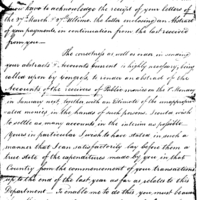 I now have to acknowledge the receipt of your letters of
the 3d March & 27 Ultimo. the latter enclosing an Abstract
of your payments in continuation from the last received
from you.
The exactings as well as man in making
your abstracts & Accounts current is highly necessary, being
called upon by Congress to render an abstract of the
Accounts of the receivers of Public monies on the 1st
in January next, together with an Estimate of the unappropri-
ated money, in the hands of such persons. I must wish
to settle as many accounts in the interim as possible
Yours in particular I wish to have stated in such a
manner that I can satisfactorily lay before them a
true state of the expenditures made by you in that
Country from the commencement of your transactions
up to the end of the last year as far as relates to this
Department. To enable me to do this, you must